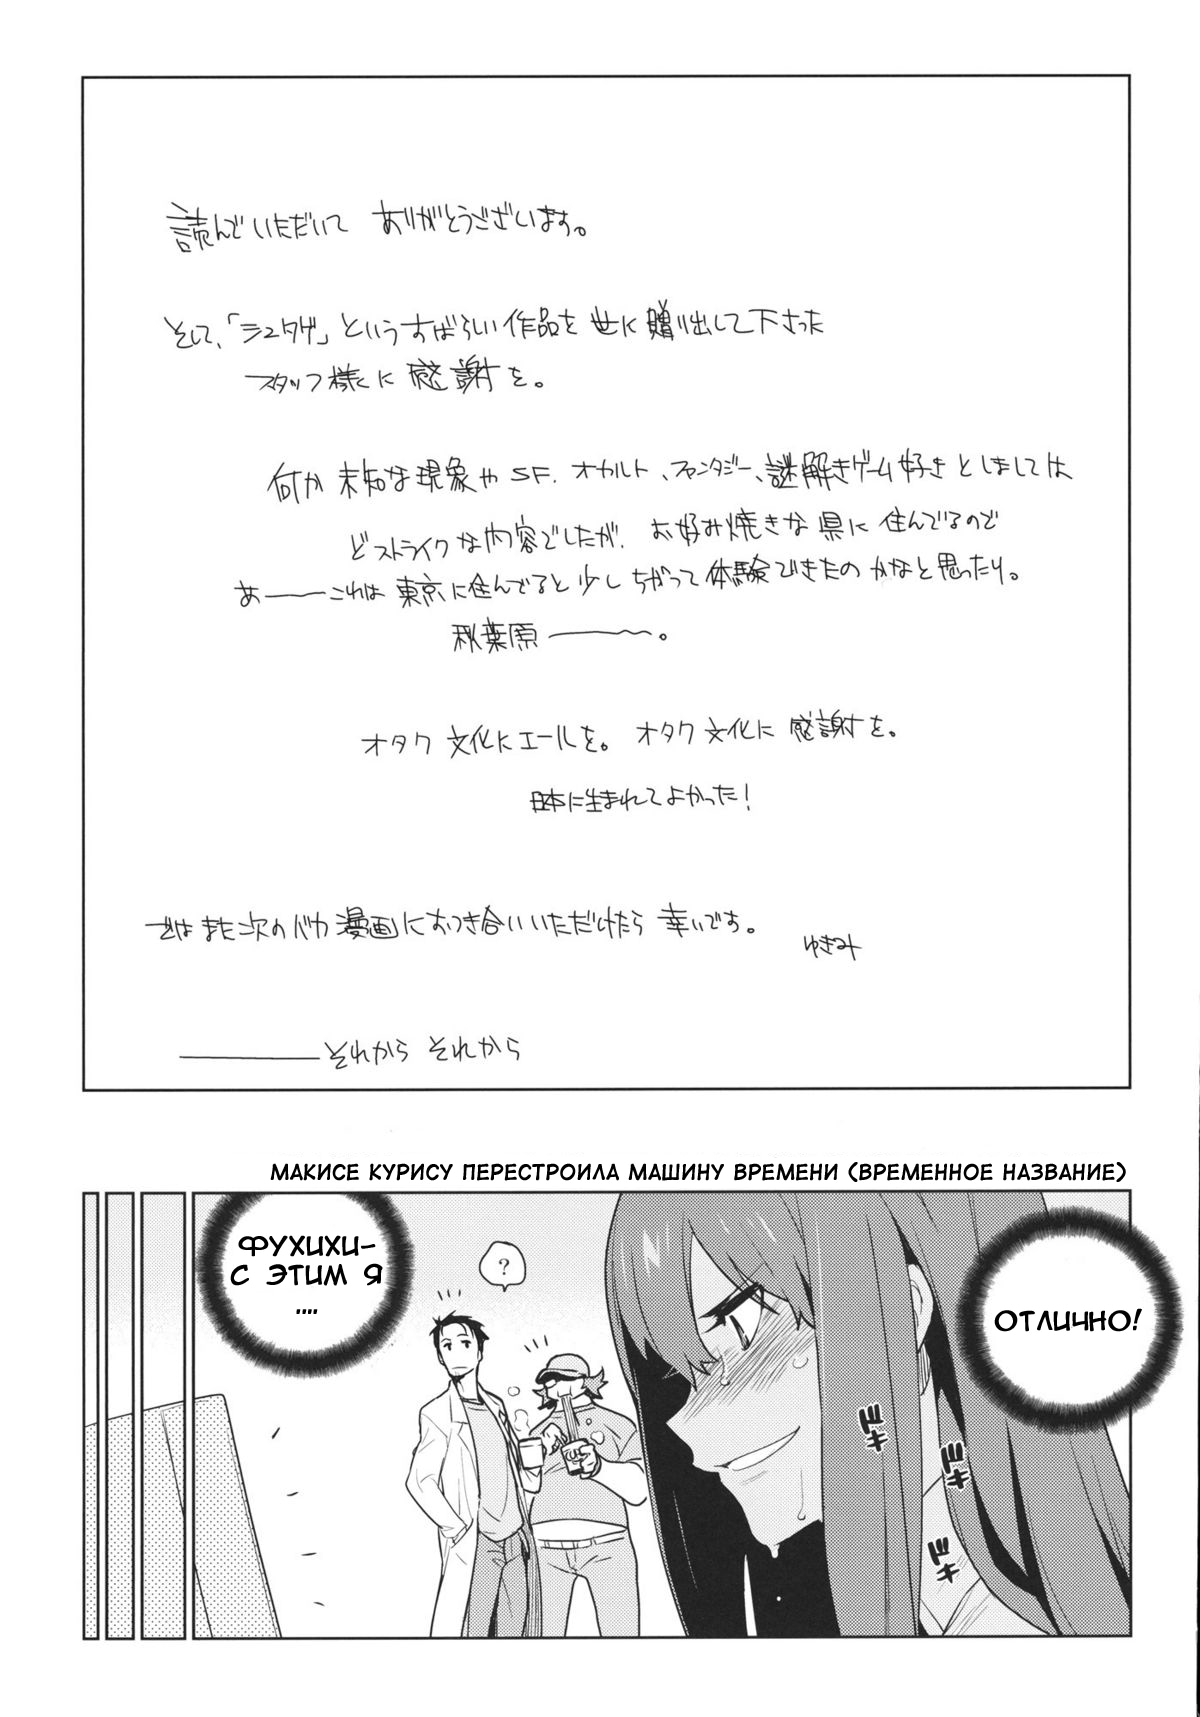 読んでいただいて ありがとうございます。
そして、「シュタゲ」というすばらしい作品を世に贈り出して下さった
スタッフ様々に感謝を。
何か未知な現象やSF、オカルト、ファンタジー、謎解きゲーム好きとしましては
どストライクな内容でしたが、お好み焼きな県に住んでるので
あーーこれは東京に住んでると少しちがって体験できたのかなと思ったり。
秋葉原ーー〜。
オタク文化にエールを。オタク文化に感謝を。
日本に生まれてよかった!
ではまた次のバカ漫画におつき合いいただけたら幸いです。
ゆきみ
────それから それから
МАКИСЕ КУРИСУ ПЕРЕСТРОИЛА МАШИНУ ВРЕМЕНИ (ВРЕМЕННОЕ НАЗВАНИЕ)
ОТЛИЧНО!
ドキ
ドキ
ドキ
?
ФУХИХИ-
С ЭТИМ Я
....